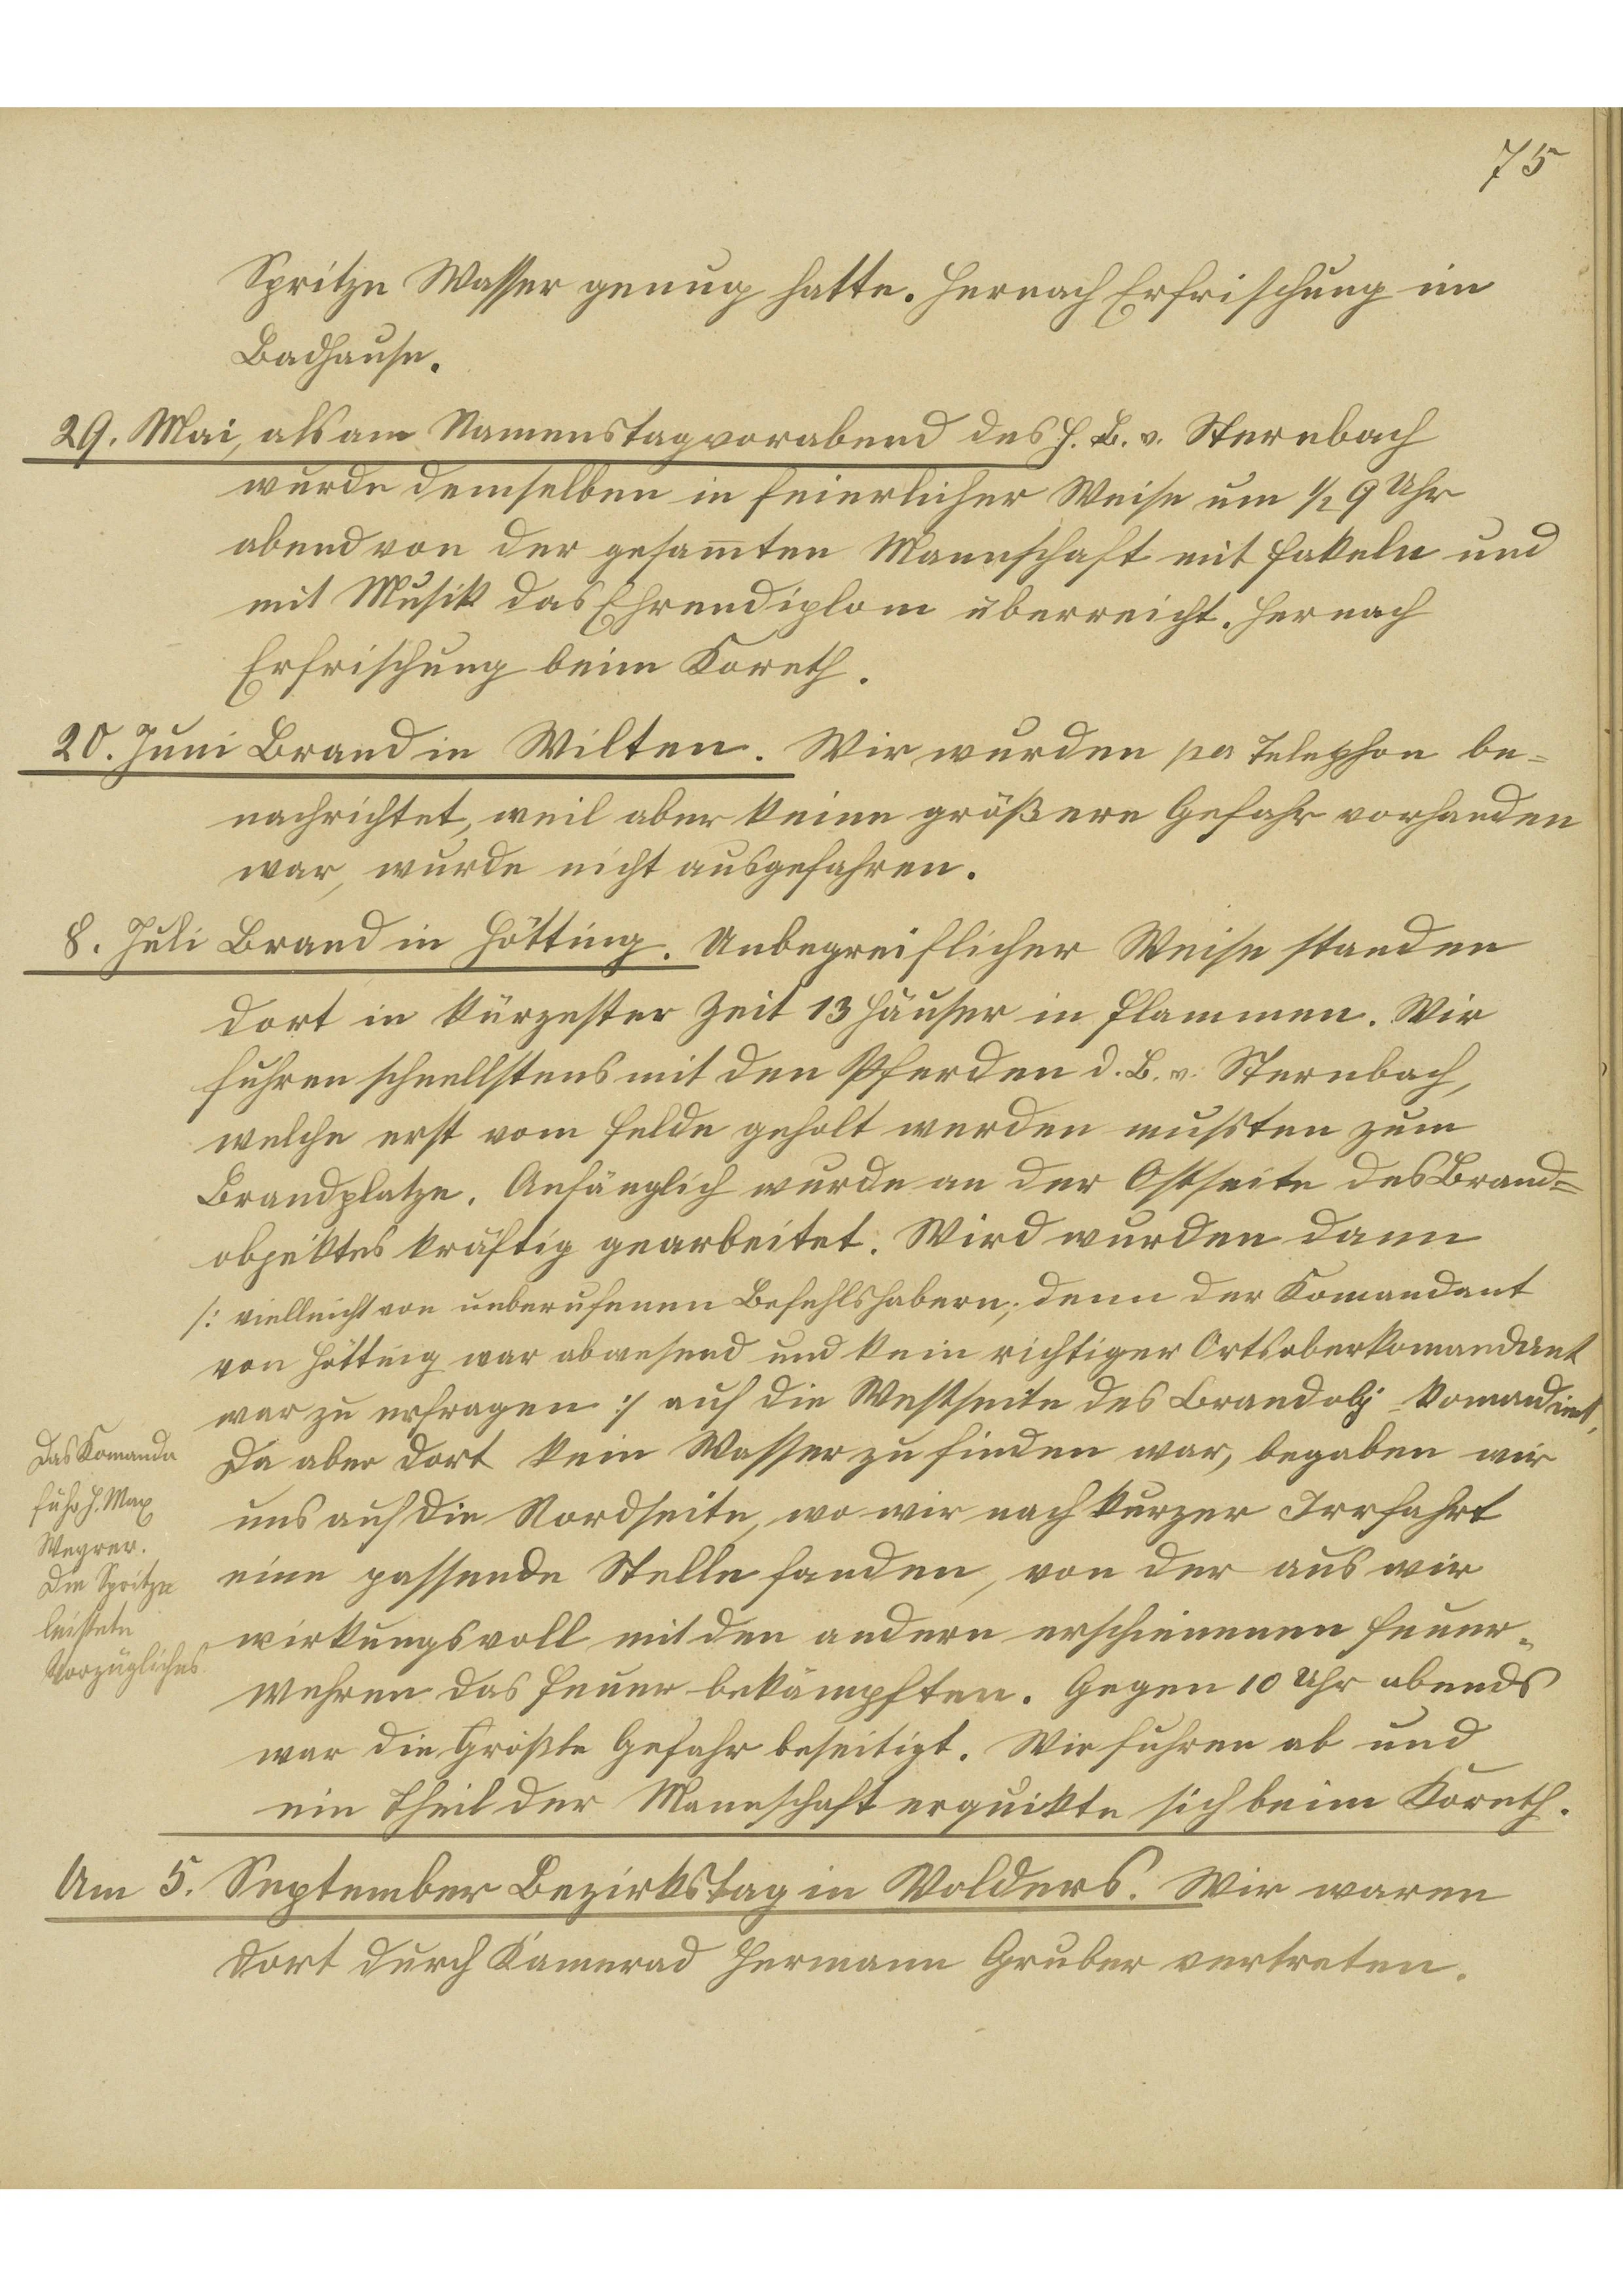 75
Spritze Wasser genug hatte. Hernach Erfrischung im
Badhause.
29. Mai, als am Namenstagvorabend des H. B. v. Sternbach
wurde demselben in feierlicher Weise um 1/2 9 Uhr
abend von der gesam̅ten Mannschaft mit Fakeln und
mit Musik das Ehrendiplom überreicht. Hernach
Erfrischung beim Koreth.
20. Juni Brand in Wilten. Wir wurden per Telephon be=
nachrichtet, weil aber keine größere Gefahr vorhanden
war, wurde nicht ausgefahren.
8. Juli Brand in Hötting. Unbegreiflicher Weise standen
dort in kürzester Zeit 13 Häuser in Flammen. Wir
fuhren schnellstens mit den Pferden d. B. v. Sternbach,
welche erst vom Felde geholt werden mußten zum
Brandplatze. Anfänglich wurde an der Ostseite des Brand=
objektes kräftig gearbeitet. Wird wurden dann
/: vielleicht von unberufenen Befehlshabern, denn der Komandant
von Hötting war abwesend und kein richtiger Ortsoberkomandant
war zu erfragen :/ auf die Westseite des Brandobj. komandirt.
Da aber dort kein Wasser zu finden war, begaben wir
uns auf die Nordseite, wo wir nach kurzer Irrfahrt
eine passende Stelle fanden, von der aus wir
wirkungsvoll mit den andern erschienenen Feuer=
wehren das Feuer bekämpften. Gegen 10 Uhr abends
war die Größte Gefahr beseitigt. Wir fuhren ab und
ein Theil der Mannschaft erquikte sich beim Koreth.
Das Komando
führ H. Max
Weyrer.
Die Spritze
leistete
Vorzügliches.
Am 5. September Bezirkstag in Volders. Wir waren
dort durch Kamerad Hermann Gruber vertreten.